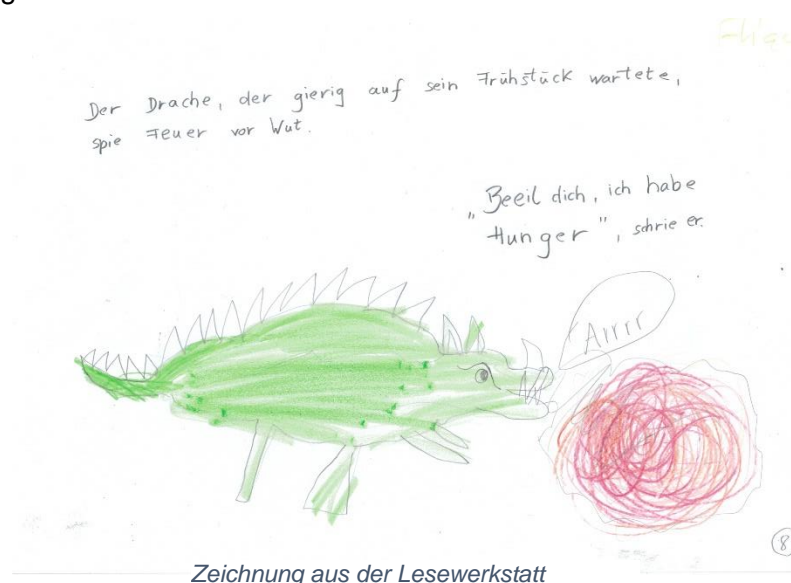 Der Drache, der gierig auf sein Frühstück wartete,
spie Feuer vor Wut.
„Beeil dich, ich habe
Hunger", schrie er.
Arrrr
8
Zeichnung aus der Lesewerkstatt